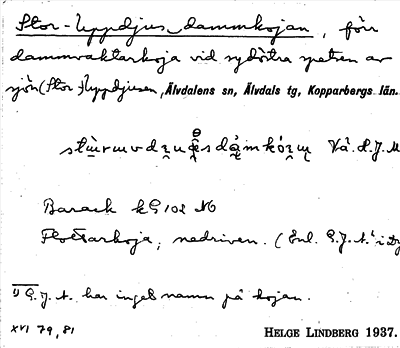 Stor-Nyppdjus dammkojan, förr
dammvaktarkoja vid sydöstra spetsen av
sjön (Stor-)Nyppdjusen, Älvdalens sn, Älvdals tg, Kopparbergs län.
Barack kG 102 NO
Flottarkoja, nedriven. (Enl. G.J.A.¹⁾ i
¹⁾ G.J.A. har inget namn på kojan.
XVI 79, 81
HELGE LINDBERG 1937.